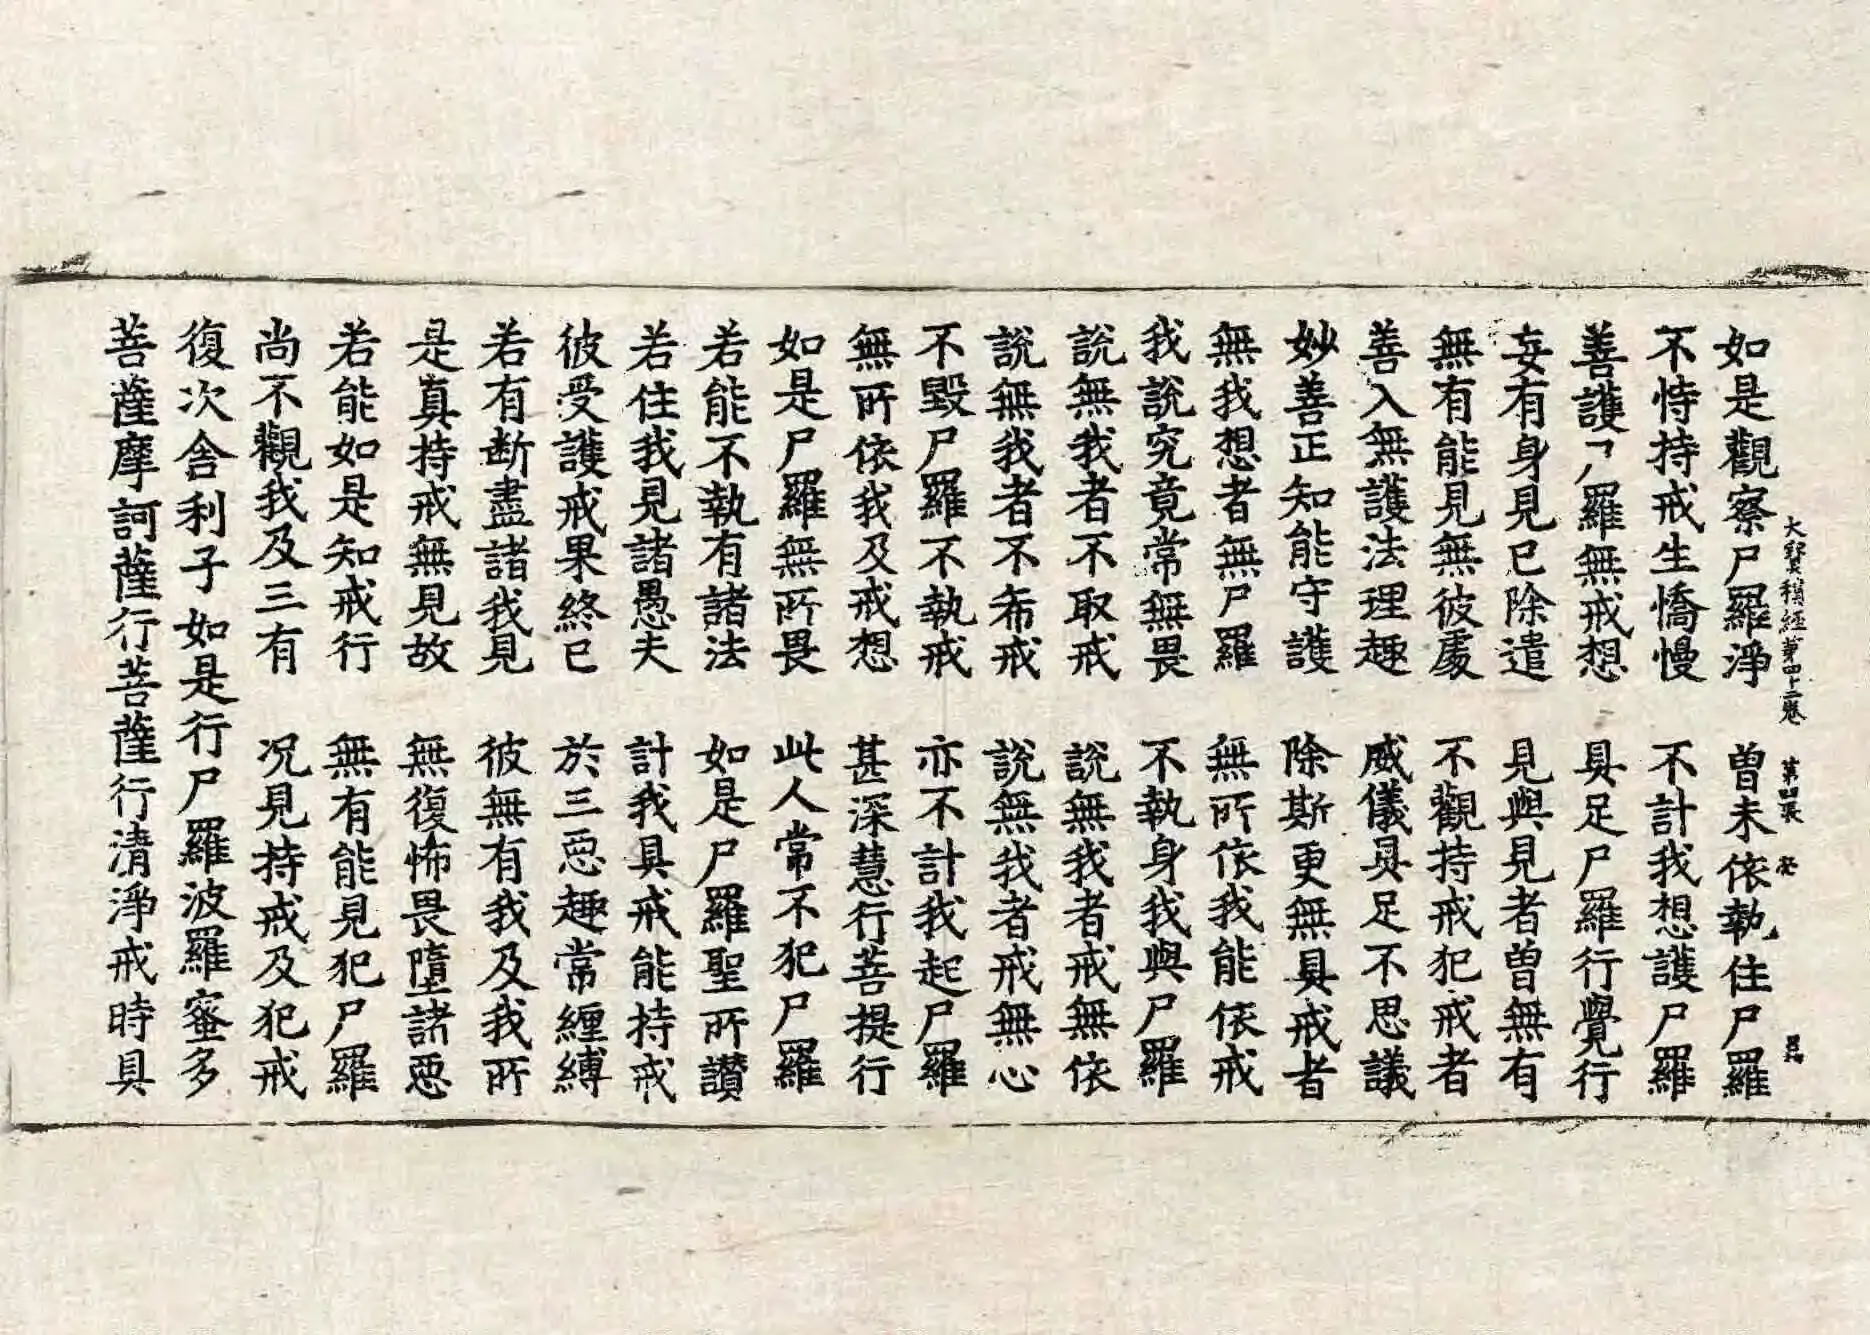 大寶積經第四十二卷 第四張
如是觀察尸羅淨 曾未依執住尸羅
不恃持戒生憍慢 不計我想護尸羅
善護尸羅無戒想 具足尸羅行覺行
妄有身見已除遣 見與見者曾無有
無有能見無彼處 不觀持戒犯戒者
善入無護法理趣 威儀具足不思議
妙善正知能守護 除斯更無具戒者
無我想者無尸羅 無所依我能依戒
我說究竟常無畏 不執身我與尸羅
說無我者不取戒 說無我者戒無依
說無我者不希戒 說無我者戒無心
不毀尸羅不執戒 亦不計我起尸羅
無所依我及戒想 甚深慧行菩提行
如是尸羅無所畏 此人常不犯尸羅
若能不執有諸法 如是尸羅聖所讚
若住我見諸愚夫 計我具戒能持戒
彼受護戒果終已 於三惡趣常纏縛
若有断盡諸我見 彼無有我及我所
是真持戒無見故 無復怖畏墮諸惡
若能如是知戒行 無有能見犯尸羅
尚不觀我及三有 况見持戒及犯戒
復次舍利子如是行尸羅波羅蜜多
菩薩摩訶薩行菩薩行清淨戒時具